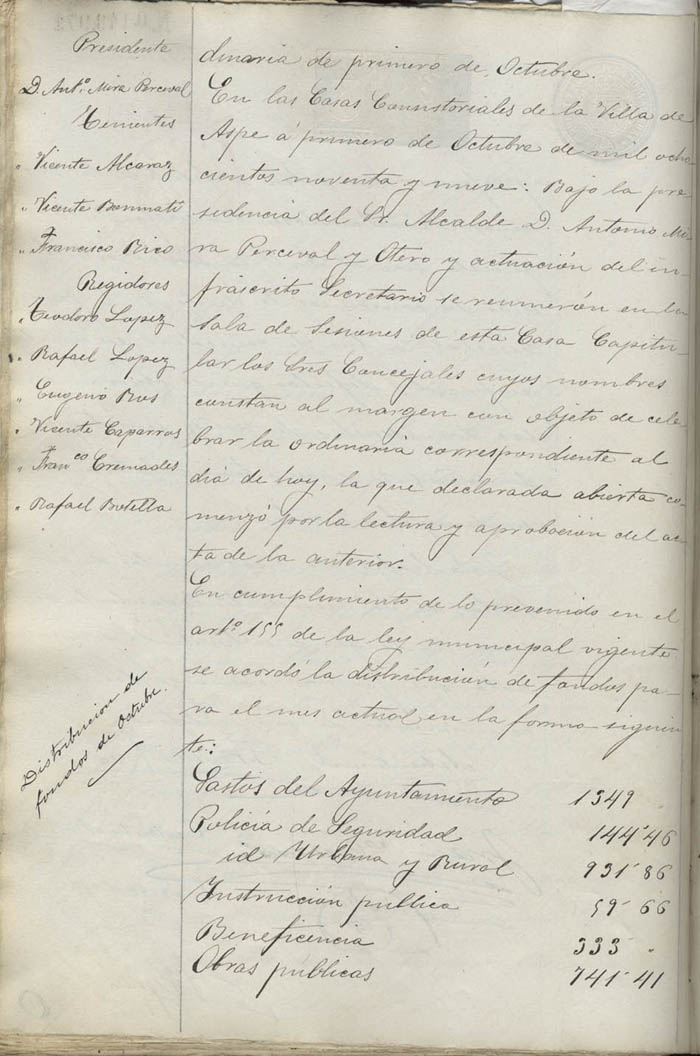 Presidente
D. Antº. Mira Perceval
Tenientes
" Vicente Alcaraz
" Vicente Bonmatí
" Francisco Rico
Regidores
" Teodoro Lopez
" Rafael Lopez
" Eugenio Ros
" Vicente Caparros
" Franco Cremades
" Rafael Botella
Distribucion de
fondos de Octubre.
dinaria de primero de Octubre.
En las Casas Consistoriales de la Villa de
Aspe á primero de Octubre de mil ocho
cientos noventa y nueve: Bajo la pre
sidencia del Sr. Alcalde D. Antonio Mi
ra Perceval y Otero y actuación del in
frascrito Secretario se reunierón en la
sala de Sesiones de esta Casa Capitu-
lar los Sres Concejales cuyos nombres
constan al margen con objeto de cele
brar la ordinaria correspondiente al
dia de hoy, la que declarada abierta co-
menzó por la lectura y aprobación del ac
ta de la anterior.
En cumplimiento de lo prevenido en el
artº 155 de la ley municipal vigente
se acordó la distribución de fondos pa-
ra el mes actual en la forma siguien
te:
Gastos del Ayuntamiento 1349
Policía de Seguridad 144'46
id Urbana y Rural 931'86
Instrucción pública 59'66
Beneficencia 333 "
Obras públicas 741'41